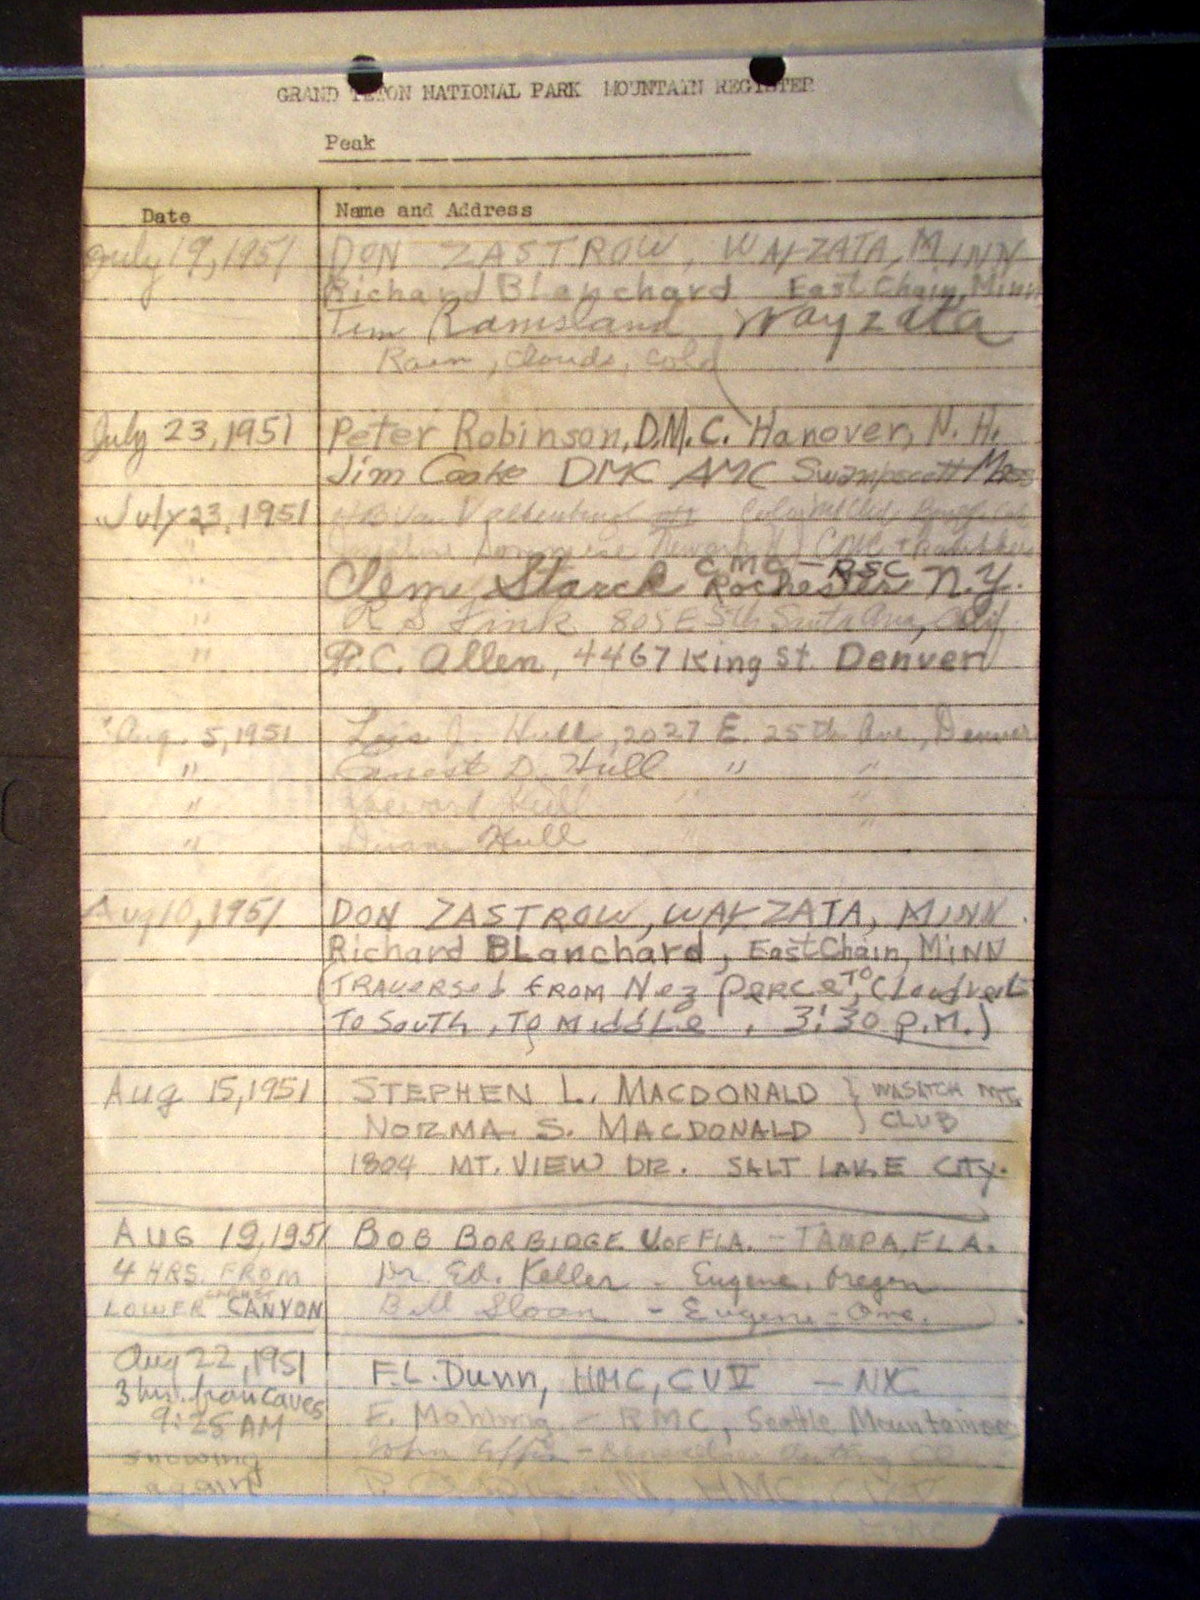 GRAND TETON NATIONAL PARK MOUNTAIN REGISTER
Peak
Date Name and Address
July 19, 1951 DON ZASTROW, WAYZATA, MINN
Richard Blanchard East Chain, Minn
Tim Ramsland Wayzata
Rain, clouds, cold
July 23, 1951 Peter Robinson, D.M.C. Hanover, N.H.
Jim Cooke DMC AMC Swampscott Mass
July 23, 1951
"
CMC - RSC
" Clem Starck Rochester N.Y.
" R S Fink 805 E 5th Santa Ana, Calif
" P.C. Allen, 4467 King St. Denver
Aug. 5, 1951 Lois J. Hull, 2027 E. 25th Ave., Denver
" Ernest D. Hull " "
" Hull " "
" Duane Hull " "
Aug 10, 1951 DON ZASTROW, WAYZATA, MINN.
Richard BLanchard, East Chain, MINN
(TRAVERSED FROM Nez Perce, TO Cloudveil
TO SOUTH, TO MIDDLE, 3:30 P.M.)
Aug 15, 1951 STEPHEN L. MACDONALD } WASATCH MT.
NORMA S. MACDONALD } CLUB
1804 MT. VIEW DR. SALT LAKE CITY.
AUG 19, 1951 BOB BORBIDGE U. OF FLA. - TAMPA, FLA.
4 HRS. FROM Dr. Ed. Keller - Eugene, Oregon
LOWER CANYON Bill Sloan - Eugene - Ore.
Aug 22, 1951 F.L. Dunn, HMC, CUV - NYC
3 hrs. from caves
9:25 AM E. Mohling - RMC, Seattle Mountaineers
snowing John
again HMC,